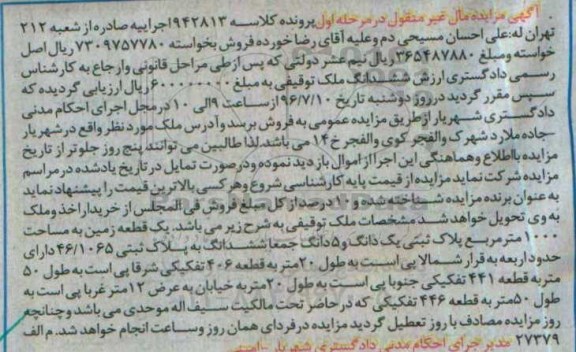 آگهی مزایده مال غیر منقول در مرحله اول پرونده کلاسه ۹۴۲۸۱۳ اجراییه صادره از شعبه ۲۱۲
تهران له: علی احسان مسیحی دم و علیه آقای رضا خورده فروش بخواسته ۷۳۰۹۷۵۷۷۸۰ ریال اصل
خواسته و مبلغ ۳۶۵۴۸۷۸۸۰ ریال نیم عشر دولتی که پس از طی مراحل قانونی و ارجاع به کارشناس
رسمی دادگستری ارزش ششدانگ ملک توقیفی به مبلغ ریال ارزیابی گردیده که
سپس مقرر گردید در روز دوشنبه تاریخ ۹۶/۷/۱۰ از ساعت ۹ الی ۱۰ در محل اجرای احکام مدنی
دادگستری شهریار از طریق مزایده عمومی به فروش برسد و آدرس ملک مورد نظر واقع در شهریار
جاده ملارد شهرک والفجر کوی والفجر خ ۱۴ می باشد. لذا طالبین می توانند پنج روز جلوتر از تاریخ
مزایده با اطلاع و هماهنگی این اجرا از اموال بازدید نموده و در صورت تمایل در تاریخ یاد شده در مراسم
مزایده شرکت نماید مزایده از قیمت پایه کارشناسی شروع و هر کسی بالاترین قیمت را پیشنهاد نماید
به عنوان برنده مزایده شناخته شده و ۱۰ درصد از کل مبلغ فروش فی المجلس از خریدار اخذ و ملک
به وی تحویل خواهد شد مشخصات ملک توقیفی به شرح زیر می باشد. یک قطعه زمین به مساحت
۱۰۰۰ متر مربع پلاک ثبتی یک دانگ و ۵ دانگ جمعا ششدانگ به پلاک ثبتی ۴۶/۱۰۶۵ دارای
حدود اربعه به قرار شمالا پی است به طول ۲۰ متر به قطعه ۴۰۶ تفکیکی شرقا پی است به طول ۵۰
متر به قطعه ۴۴۱ تفکیکی جنوبا پی است به طول ۲۰ متر به خیابان به عرض ۱۲ متر غربا پی است به
طول ۵۰ متر به قطعه ۴۴۶ تفکیکی که در حاضر تحت مالکیت سیف اله موحدی می باشد و چنانچه
روز مزایده مصادف با روز تعطیل گردید مزایده در فردای همان روز و ساعت انجام خواهد شد. م الف
۲۷۳۷۹ مدیر اجرای احکام مدنی دادگستری شهریار